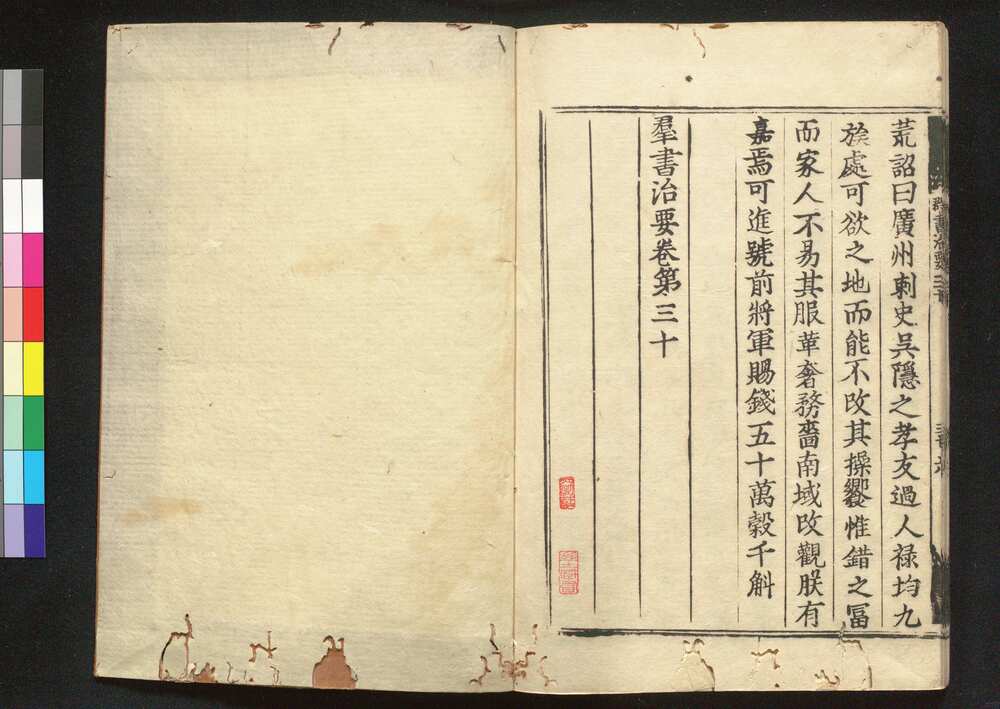 荒詔曰廣州刺史吳隱之孝友過人祿均九
族處可欲之地而能不改其操饗惟錯之冨
而家人不易其服革奢務嗇南域改觀朕有
嘉焉可進號前將軍賜錢五十萬穀千斛
羣書治要卷第三十